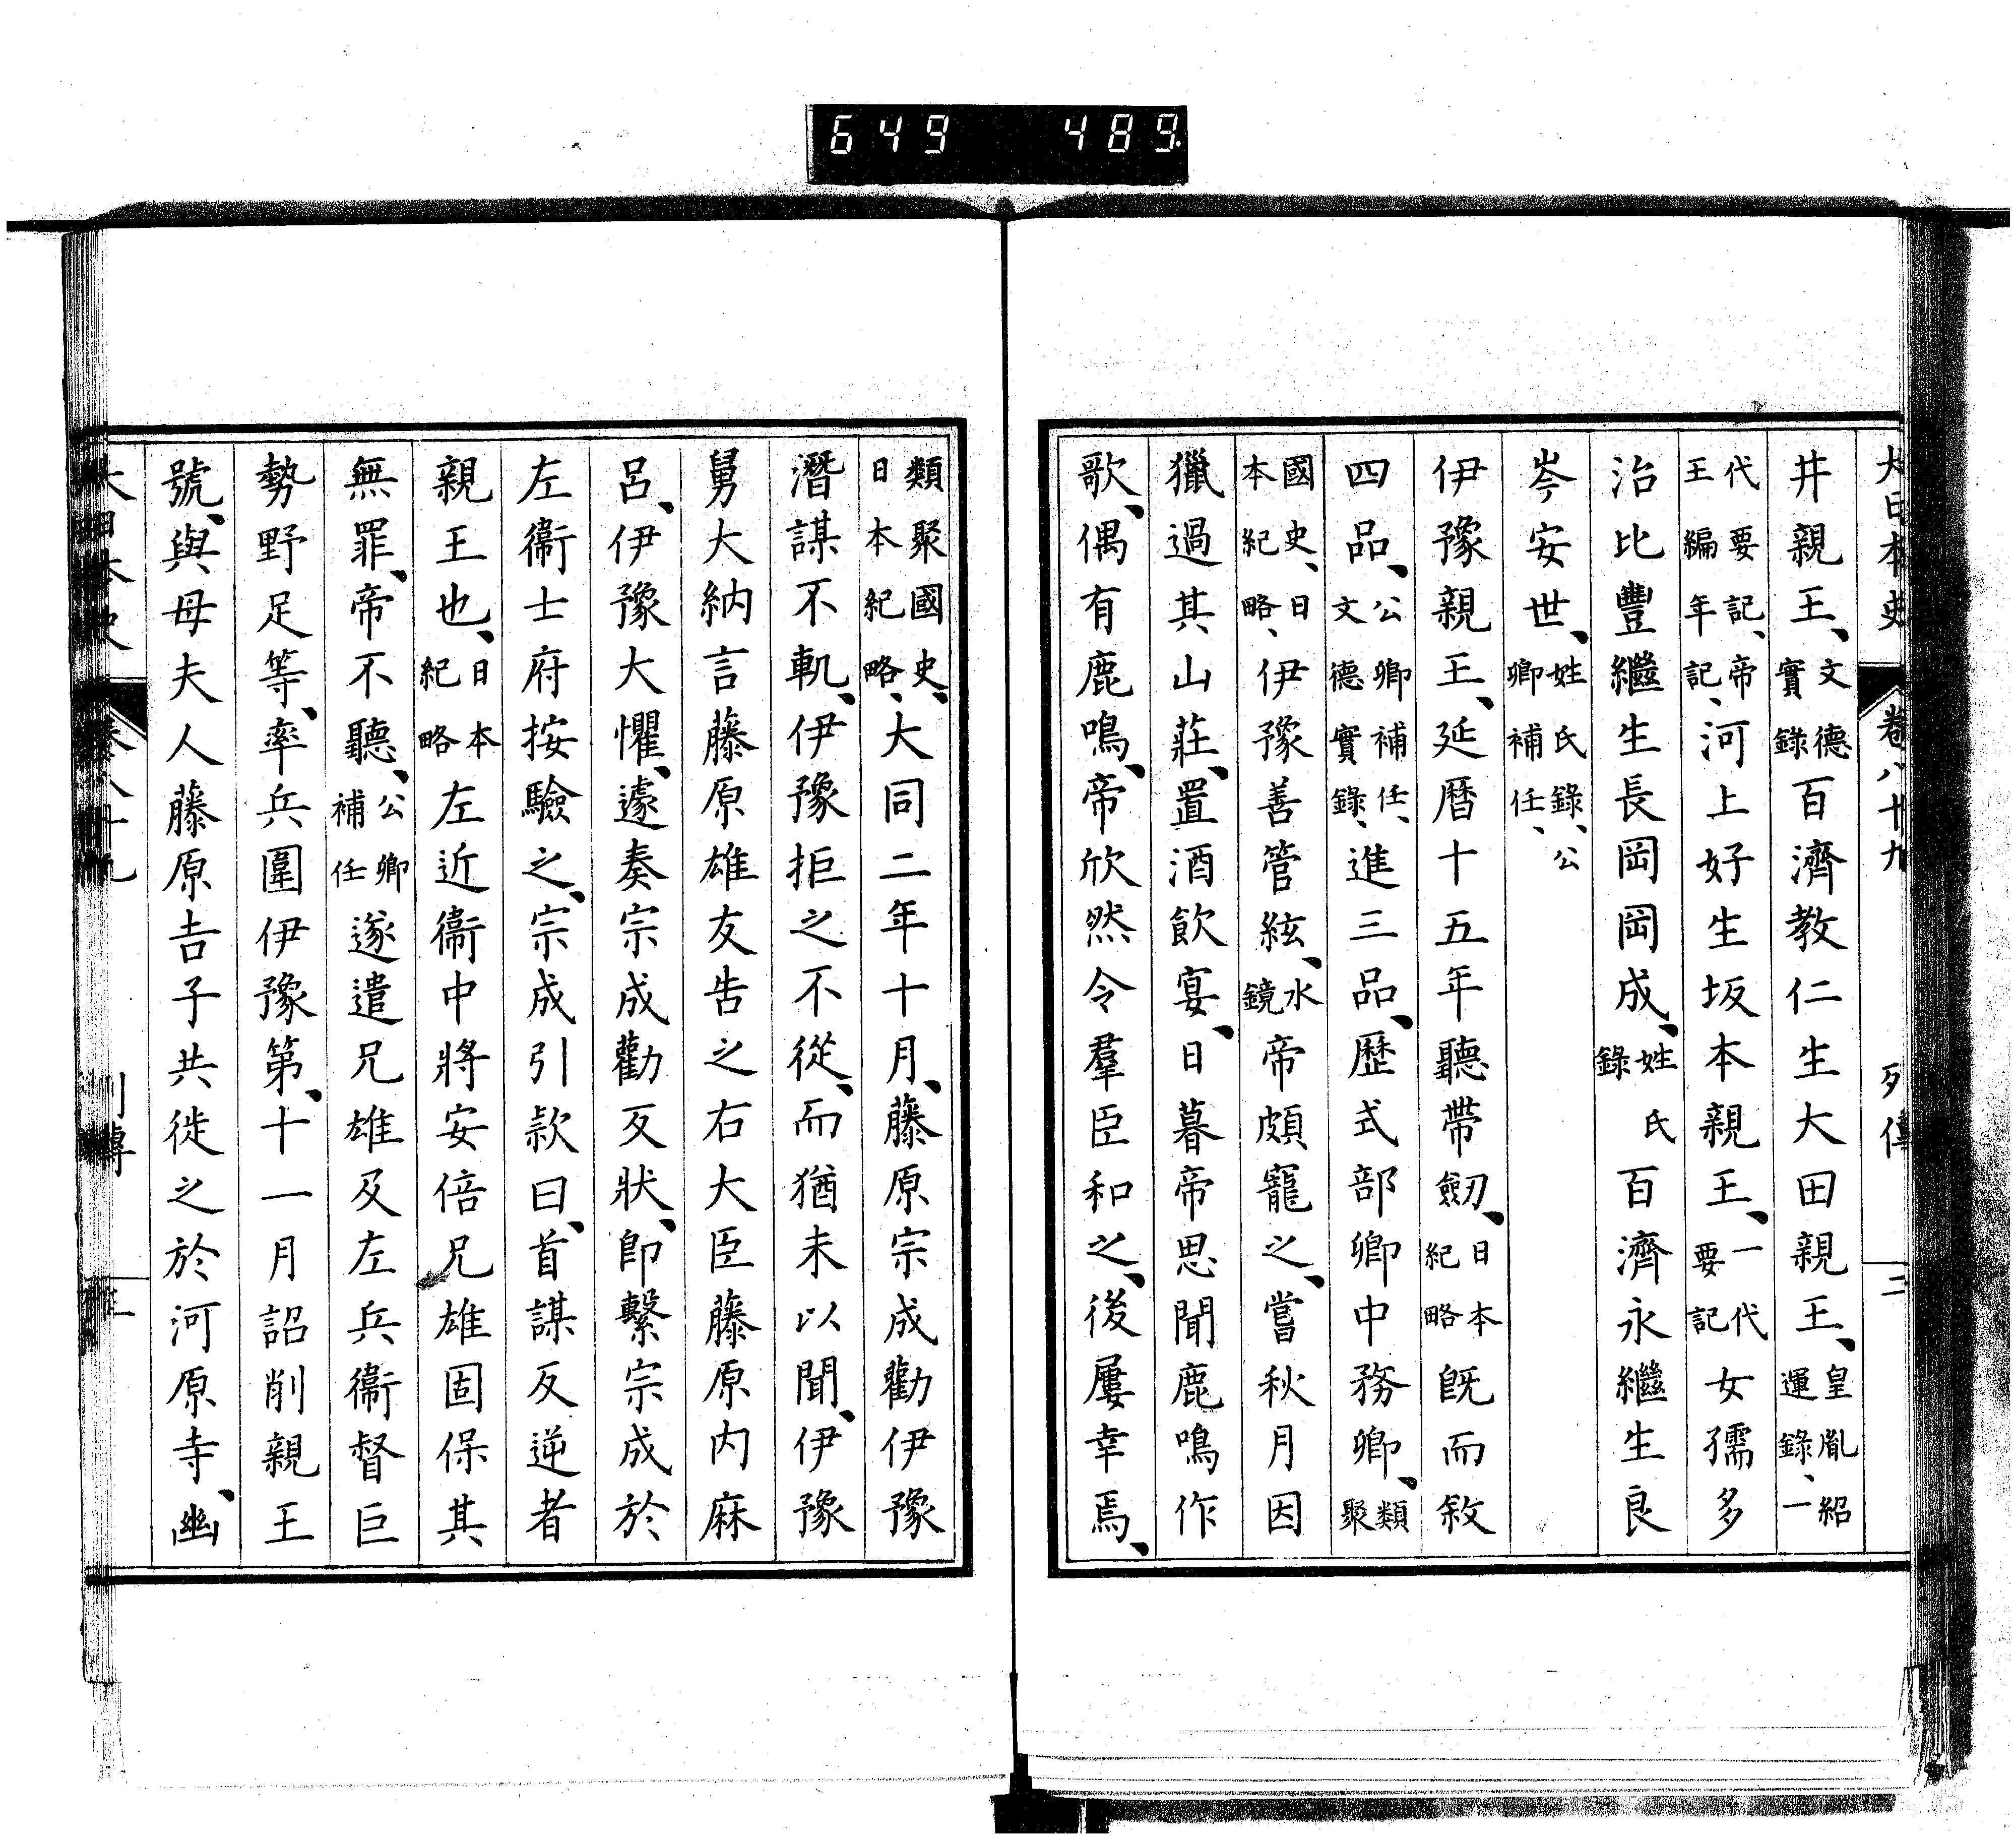 649 489
大日本史 卷八十九 列傳 二
井親王、文德實錄百濟教仁生大田親王、皇胤紹運錄、一
代要記、帝王編年記、河上好生坂本親王、一代要記女孺多
治比豐繼生長岡岡成、姓氏錄百濟永繼生良
岑安世、姓氏錄、公卿補任、
伊豫親王、延曆十五年聽帶劒、日本紀略既而敘
四品、公卿補任、文德實錄、進三品、歷式部卿中務卿、類聚
國史、日本紀略、伊豫善管絃、水鏡帝頗寵之、嘗秋月因
獵過其山莊、置酒飲宴、日暮帝思聞鹿鳴作
歌、偶有鹿鳴、帝欣然令羣臣和之、後屢幸焉、
類聚國史、日本紀略、大同二年十月、藤原宗成勸伊豫
潛謀不軌、伊豫拒之不從、而猶未以聞、伊豫
舅大納言藤原雄友告之右大臣藤原内麻
呂、伊豫大懼、遽奏宗成勸反狀、卽繫宗成於
左衞士府按驗之、宗成引款曰、首謀反逆者
親王也、日本紀略左近衞中將安倍兄雄固保其
無罪、帝不聽、公卿補任遂遣兄雄及左兵衞督巨
勢野足等、率兵圍伊豫第、十一月詔削親王
號、與母夫人藤原吉子共徙之於河原寺、幽
大日本史 卷八十九 列傳 三